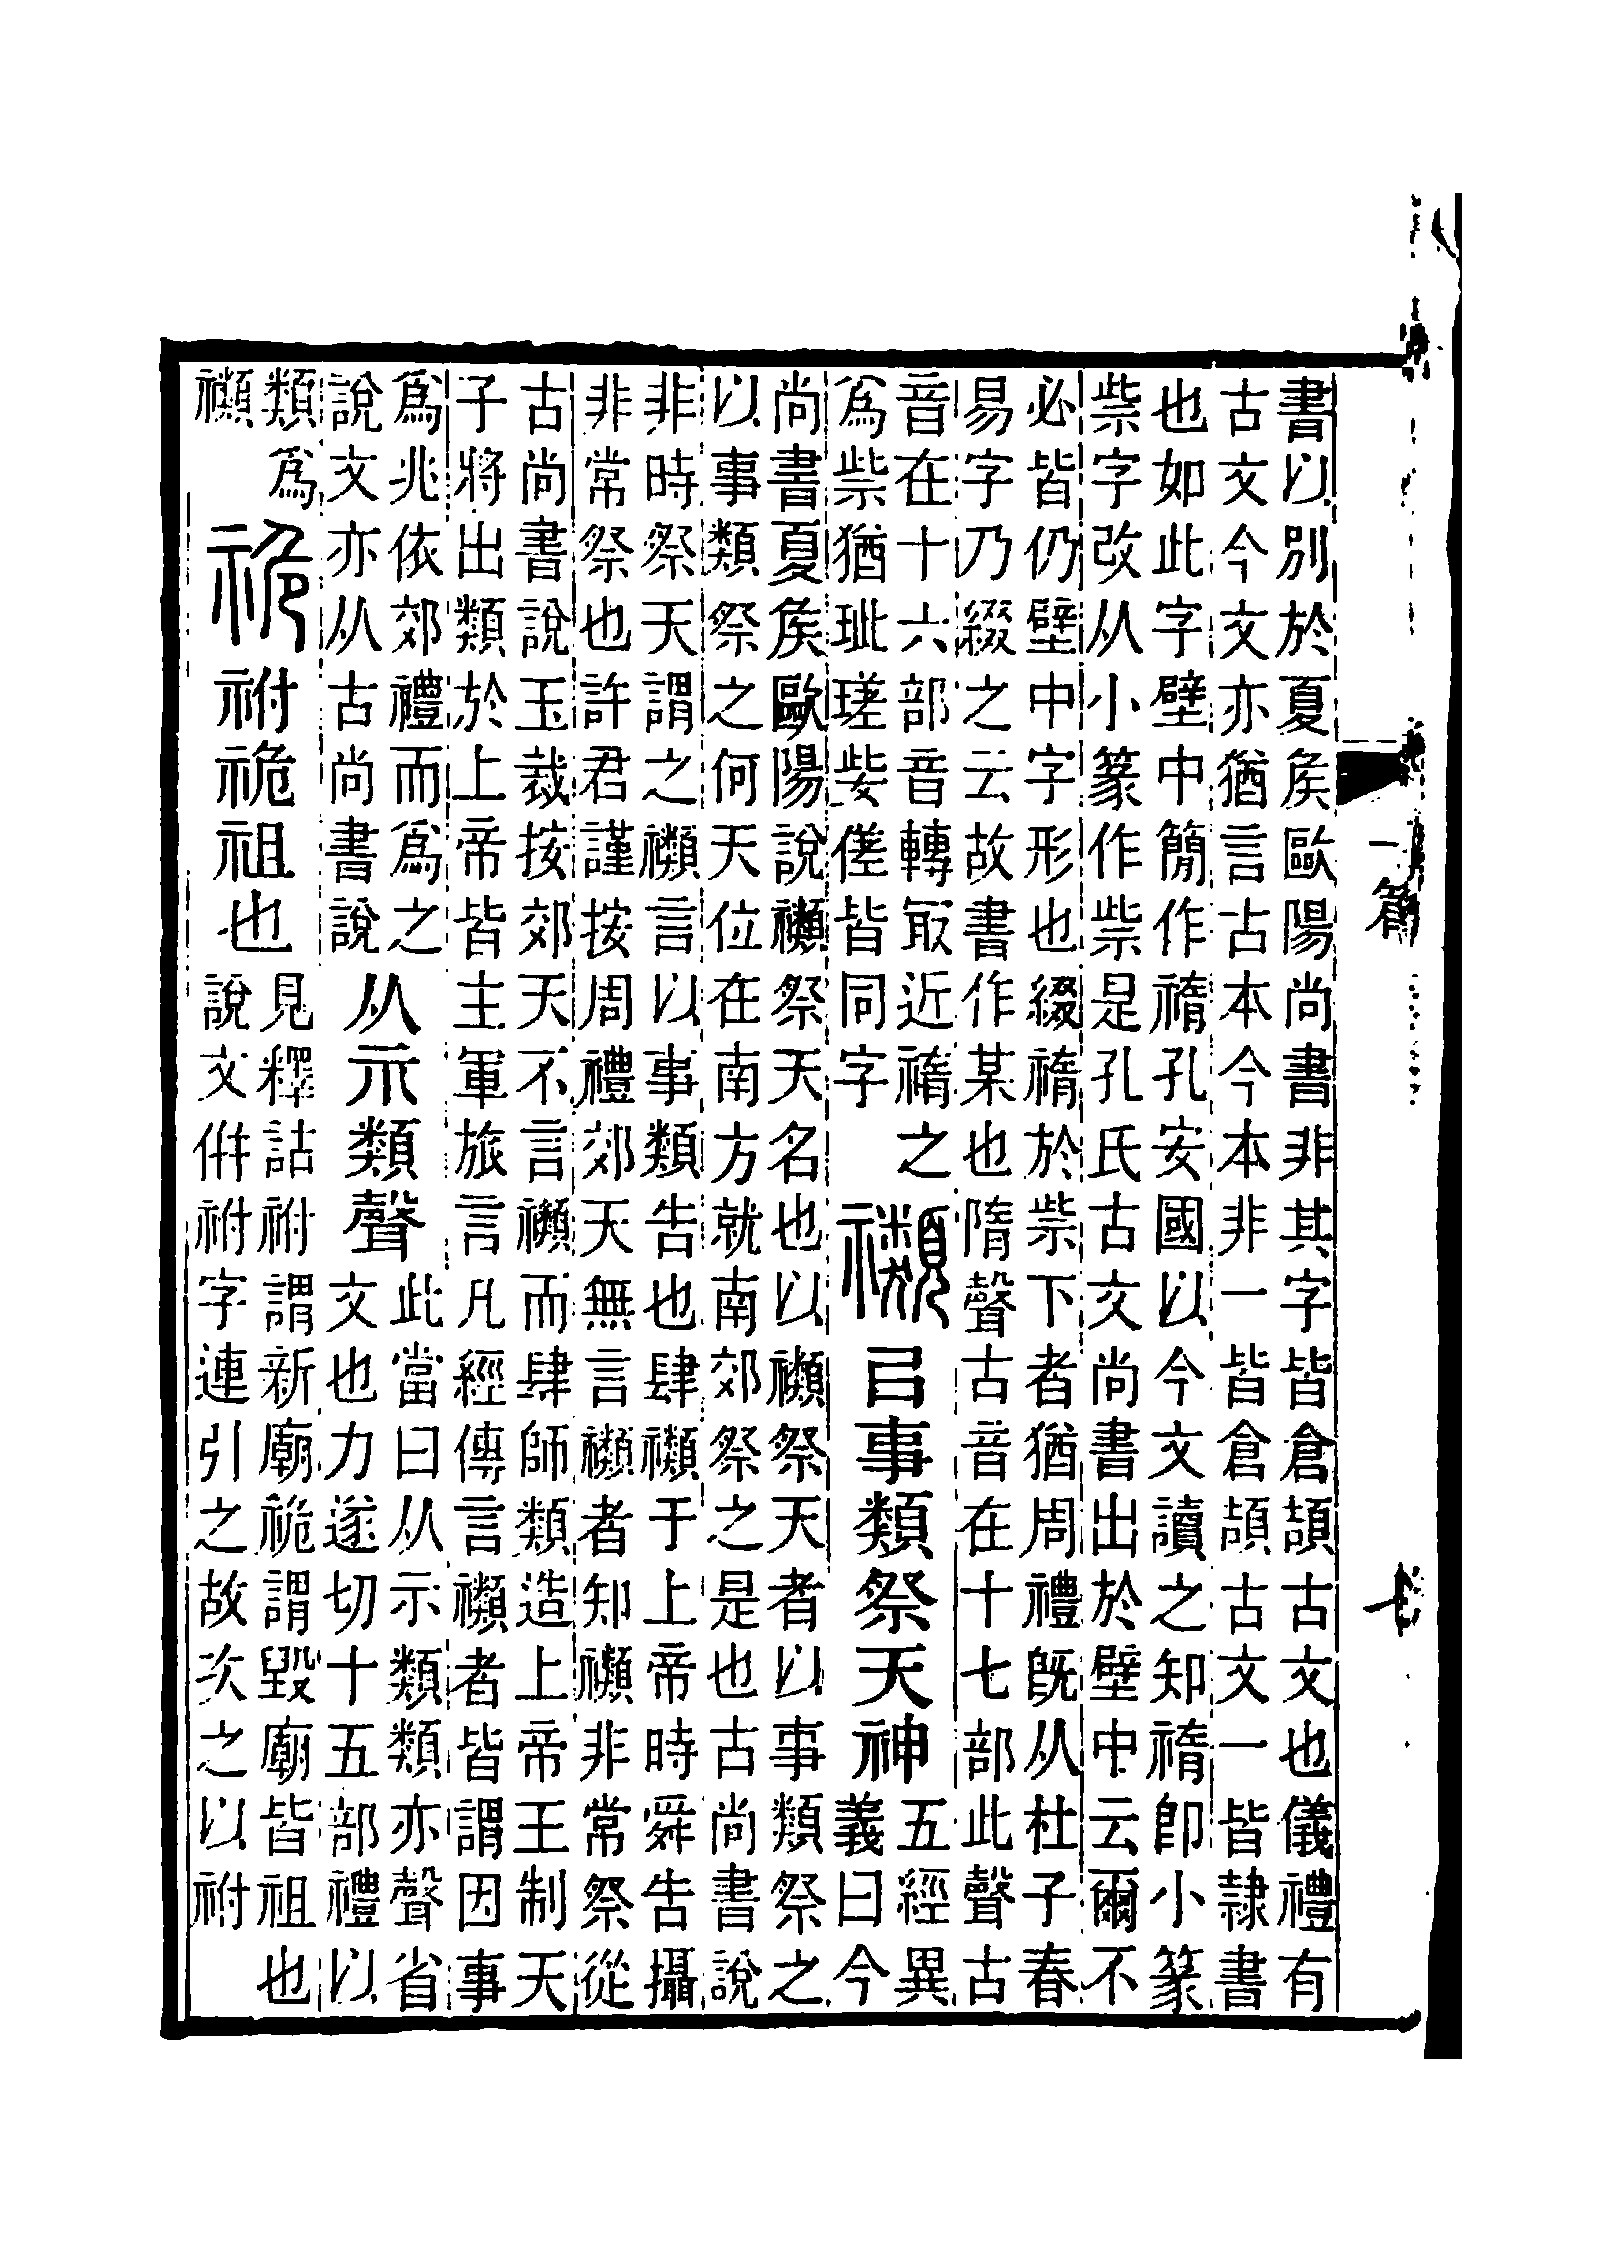 書以別於夏矦歐陽尚書非其字皆倉頡古文也儀禮有
古文今文亦猶言古本今本非一皆倉頡古文一皆隸書
也如此字壁中簡作䄊孔安國以今文讀之知䄊卽小篆
祡字改从小篆作祡是孔氏古文尚書出於壁中云爾不
必皆仍壁中字形也綴䄊於祡下者猶周禮旣从杜子春
易字乃綴之云故書作某也隋聲古音在十七部此聲古
音在十六部音轉冣近䄊之
爲祡猶玼瑳姕傞皆同字
禷㠯事類祭天神
五經異
義曰今
尚書夏矦歐陽說禷祭天名也以禷祭天者以事類祭之
以事類祭之何天位在南方就南郊祭之是也古尚書說
非時祭天謂之禷言以事類告也肆禷于上帝時舜告攝
非常祭也許君謹按周禮郊天無言禷者知禷非常祭從
古尚書說玉裁按郊天不言禷而肆師類造上帝王制天
子將出類於上帝皆主軍旅言凡經傳言禷者皆謂因事
爲兆依郊禮而爲之
說文亦从古尚書說
从示類聲
此當曰从示類類亦聲省
文也力遂切十五部禮以
類爲
禷
祪祔祪祖也
見釋詁祔謂新廟祪謂毀廟皆祖也
說文倂祔字連引之故次之以祔
一篇
七